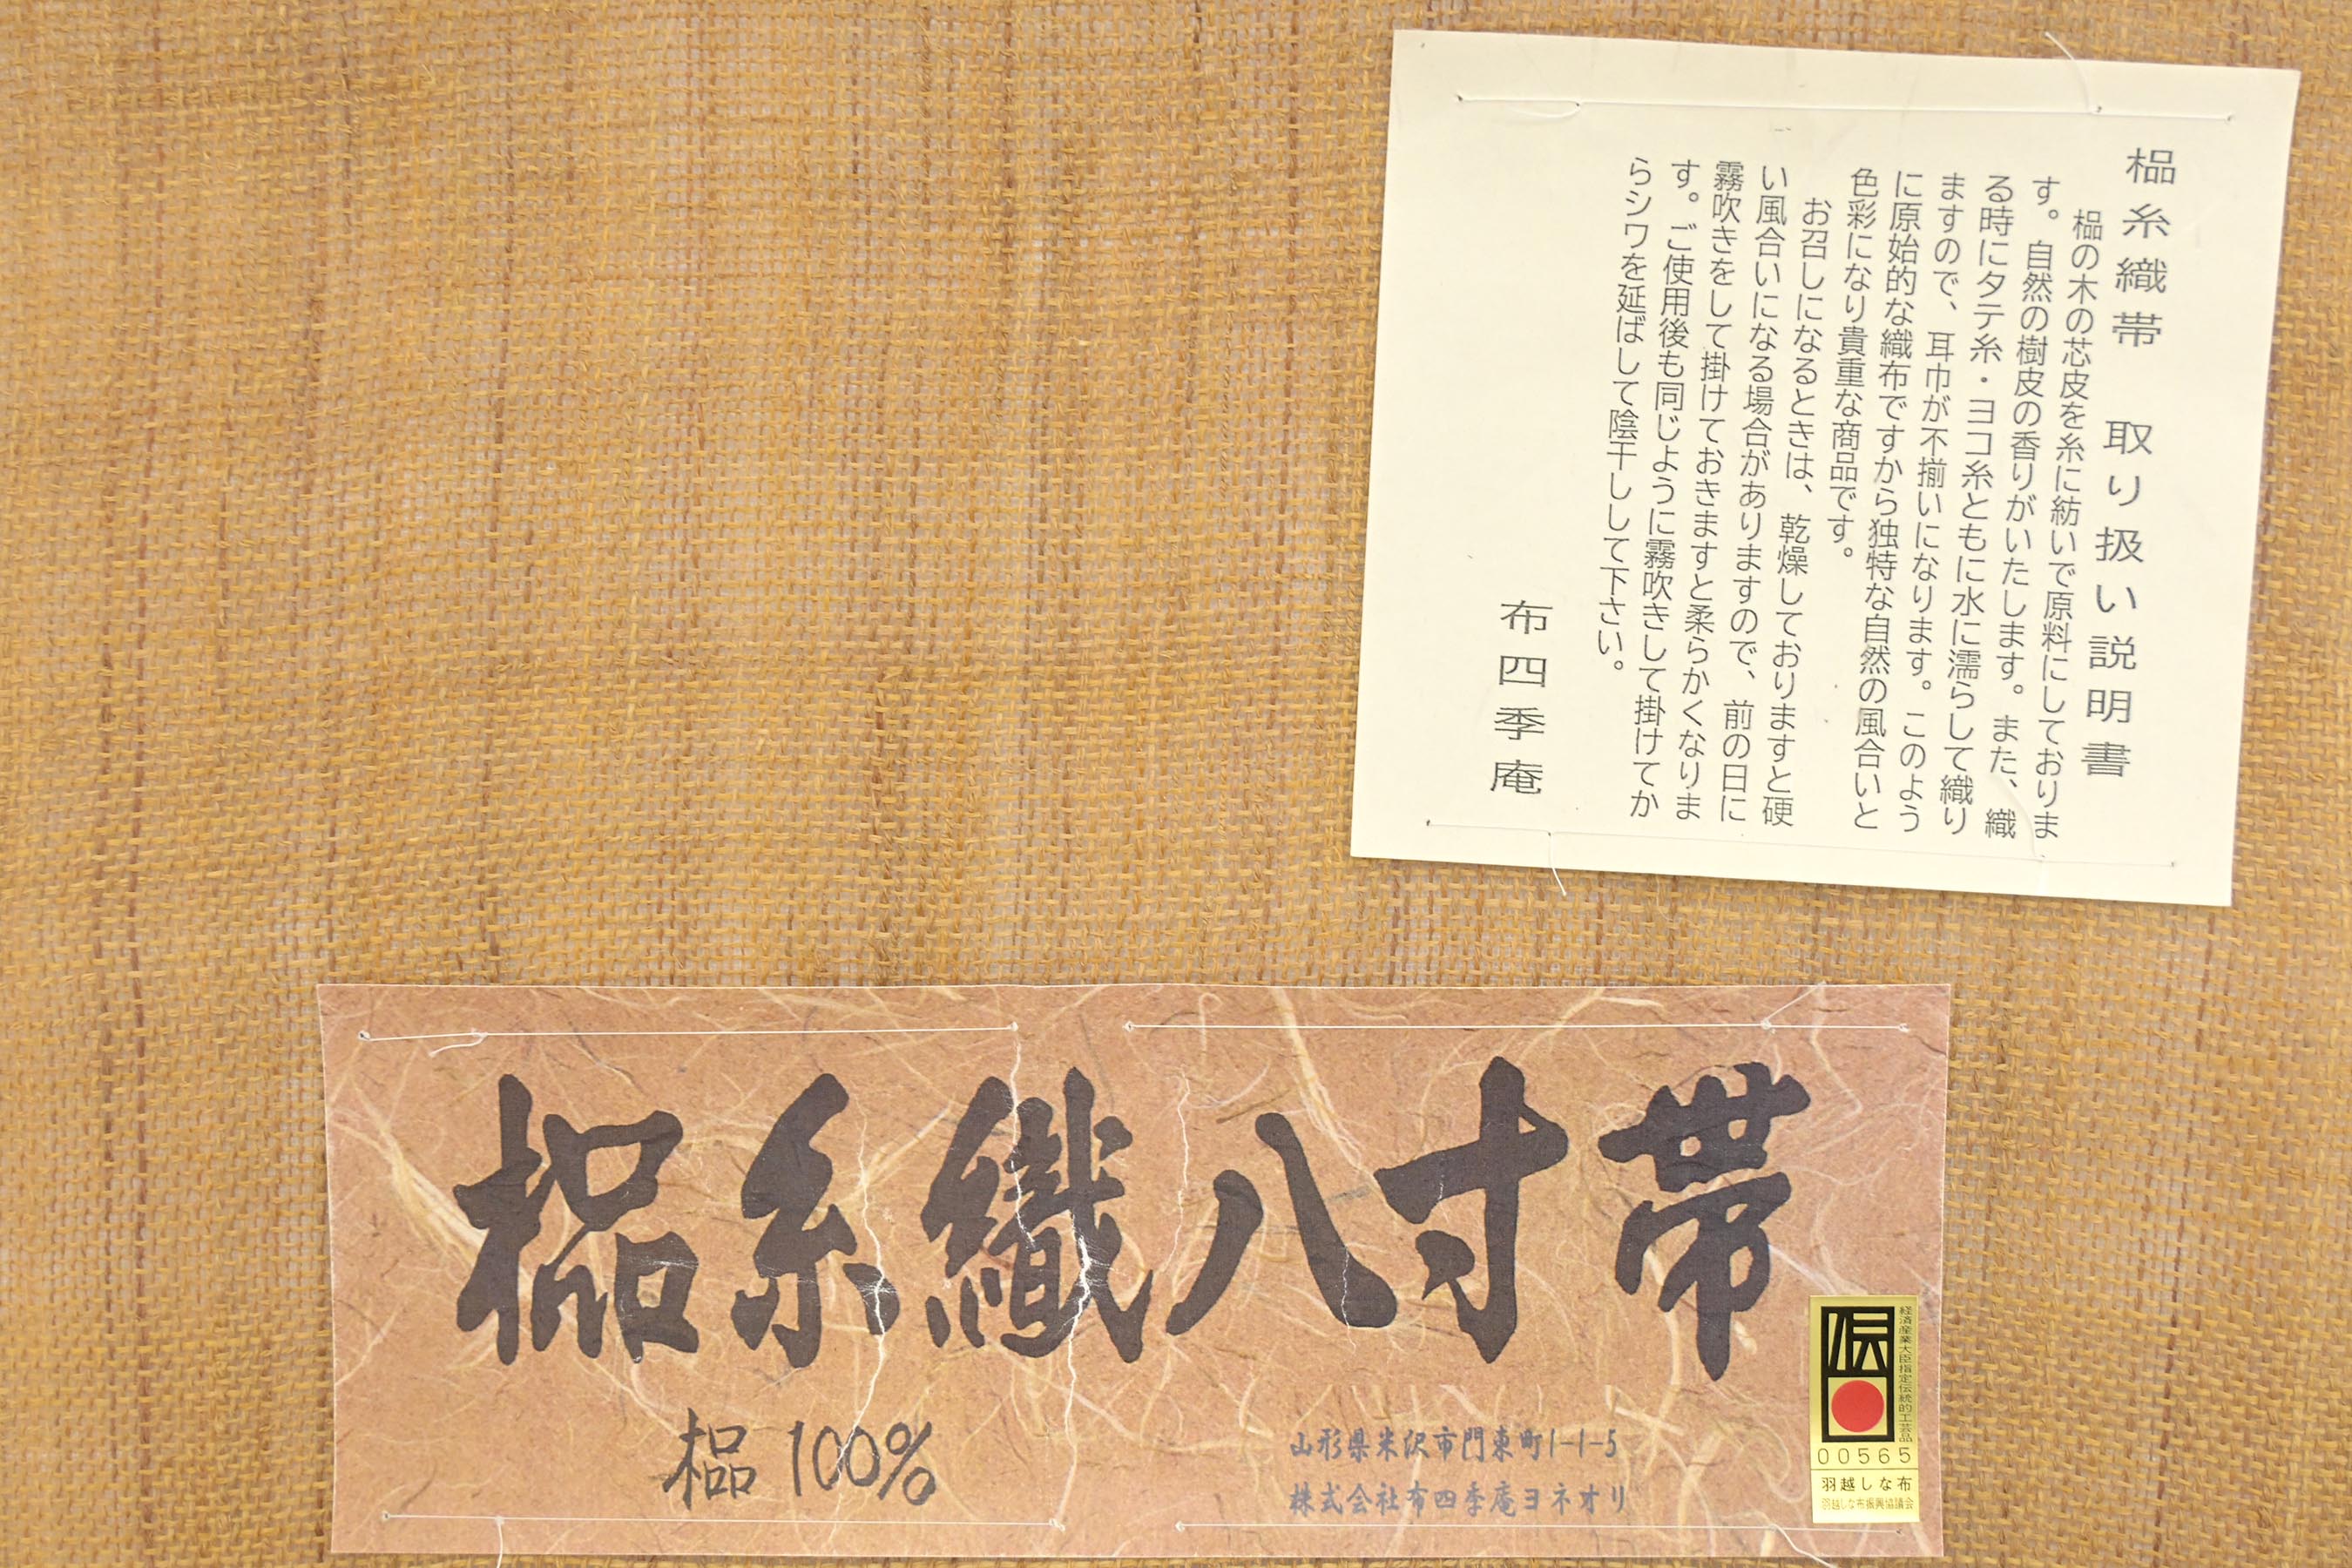 榀糸織帯　取り扱い説明書
　榀の木の芯皮を糸に紡いで原料にしておりま
す。自然の樹皮の香りがいたします。また、織
る時にタテ糸・ヨコ糸ともに水に濡らして織り
ますので、耳巾が不揃いになります。このよう
に原始的な織布ですから独特な自然の風合いと
色彩になり貴重な商品です。
　お召しになるときは、乾燥しておりますと硬
い風合いになる場合がありますので、前の日に
霧吹きをして掛けておきますと柔らかくなりま
す。ご使用後も同じように霧吹きして掛けてか
らシワを延ばして陰干しして下さい。
布四季庵
榀糸織八寸帯
榀 100%
山形県米沢市門東町1-1-5
株式会社布四季庵ヨネオリ
伝
経済産業大臣指定伝統的工芸品
00565
羽越しな布
羽越しな布振興協議会